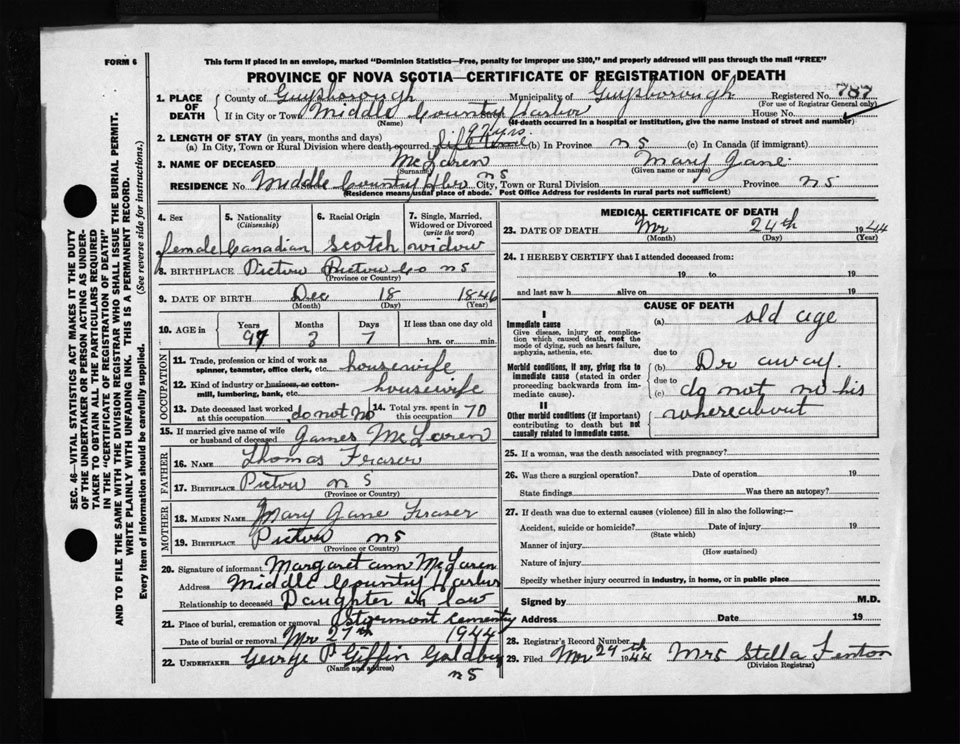 FORM 6
This form if placed in an envelope, marked "Dominion Statistics—Free, penalty for improper use $300," and properly addressed will pass through the mail "FREE"
PROVINCE OF NOVA SCOTIA—CERTIFICATE OF REGISTRATION OF DEATH
1. PLACE OF DEATH County of Guysborough Municipality of Guysborough Registered No. 787
(For use of Registrar General only)
If in City or Town Middle Country Harbor Street House No.
(Name) (If death occurred in a hospital or institution, give the name instead of street and number)
2. LENGTH OF STAY (in years, months and days)
(a) In City, Town or Rural Division where death occurred yrs. (b) In Province n s (c) In Canada (if immigrant)
3. NAME OF DECEASED McLaren Mary Jane
(Surname) (Given name or names)
RESIDENCE No. Middle Country Hbr n s City, Town or Rural Division Province n s
(Residence means usual place of abode. Post Office Address for residents in rural parts not sufficient)
4. Sex female
5. Nationality (Citizenship) Canadian
6. Racial Origin Scotch
7. Single, Married, Widowed or Divorced (write the word) widow
8. BIRTHPLACE Pictou Pictou Co n s
(Province or Country)
9. DATE OF BIRTH Dec 18 1846
(Month) (Day) (Year)
10. AGE in Years 97 Months 3 Days 7 If less than one day old hrs. or min.
OCCUPATION
11. Trade, profession or kind of work as spinner, teamster, office clerk, etc. housewife
12. Kind of industry or business, as cotton-mill, lumbering, bank, etc. housewife
13. Date deceased last worked at this occupation do not no
14. Total yrs. spent in this occupation 70
15. If married give name of wife or husband of deceased James McLaren
FATHER
16. NAME Thomas Fraser
17. BIRTHPLACE Pictou n s
(Province or Country)
MOTHER
18. MAIDEN NAME Mary Jane Fraser
19. BIRTHPLACE Pictou n s
(Province or Country)
20. Signature of informant Margaret ann McLaren
Address Middle Country Harbor
Relationship to deceased Daughter in law
21. Place of burial, cremation or removal Stormont Cementy
Date of burial or removal Mr 27th 1944
22. UNDERTAKER George P Giffin Goldboro
(Name and address) n s
MEDICAL CERTIFICATE OF DEATH
23. DATE OF DEATH Mr 24th 1944
(Month) (Day) (Year)
24. I HEREBY CERTIFY that I attended deceased from:
19 to 19
and last saw h alive on 19
CAUSE OF DEATH
I
Immediate cause
Give disease, injury or complication which caused death, not the mode of dying, such as heart failure, asphyxia, asthenia, etc.
(a) old age
due to
Morbid conditions, if any, giving rise to immediate cause (stated in order proceeding backwards from immediate cause).
(b) Dr away.
due to
(c) do not no his
whereabout
II
Other morbid conditions (if important) contributing to death but not causally related to immediate cause.
25. If a woman, was the death associated with pregnancy?
26. Was there a surgical operation? Date of operation 19
State findings Was there an autopsy?
27. If death was due to external causes (violence) fill in also the following:—
Accident, suicide or homicide? Date of injury 19
(State which)
Manner of injury
(How sustained)
Nature of injury
Specify whether injury occurred in industry, in home, or in public place
Signed by M.D.
Address Date 19
28. Registrar's Record Number
29. Filed Mr 29th 1944 Mrs Stella Fenton
(Division Registrar)
SEC. 46—VITAL STATISTICS ACT MAKES IT THE DUTY
OF THE UNDERTAKER OR PERSON ACTING AS UNDER-
TAKER TO OBTAIN ALL THE PARTICULARS REQUIRED
IN THE "CERTIFICATE OF REGISTRATION OF DEATH"
AND TO FILE THE SAME WITH THE DIVISION REGISTRAR WHO SHALL ISSUE THE BURIAL PERMIT.
WRITE PLAINLY WITH UNFADING INK. THIS IS A PERMANENT RECORD.
Every item of information should be carefully supplied. (See reverse side for instructions.)